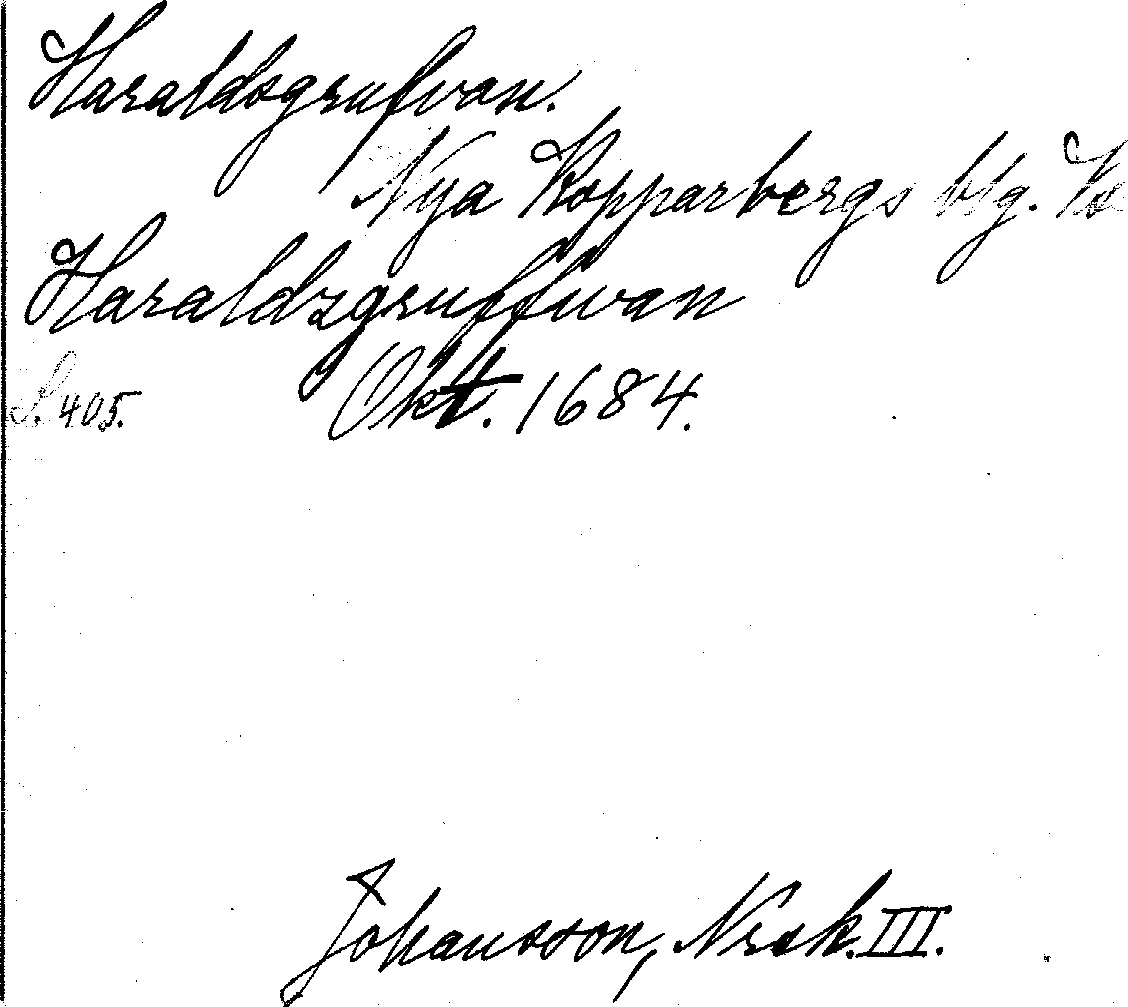 Haraldsgrufvan.
Nya Kopparbergs blg.
Haraldzgruffwan
S. 405. Okt. 1684.
Johansson, Nrsk. III.